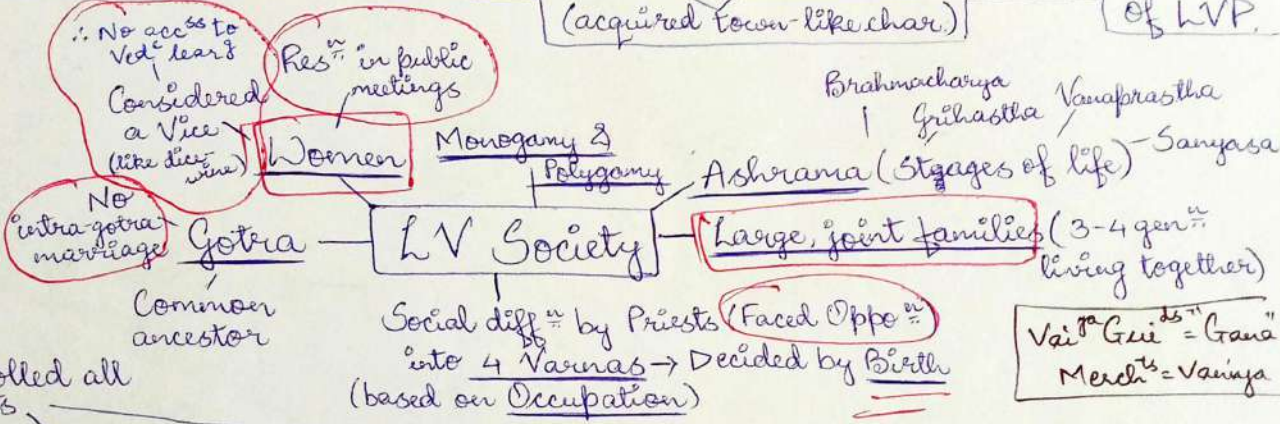 (acquired town-like char.)
of LVP.
∴ No acc^ss to
Ved^c lear^g
Considered
a Vice
(like dice-
wine)
Res^n in public
meetings
Women
Monogamy &
Polygamy
Brahmacharya
Grihastha
Vanaprastha
Ashrama (Stgages of life)
Sanyasa
No
intra-gotra
marriage
Gotra
Common
ancestor
LV Society
Large, joint families (3-4 gen^n
living together)
Social diff^n by Priests (Faced Oppo^n)
into 4 Varnas → Decided by Birth
(based on Occupation)
Vai^ya Gui^ds = "Gana"
Merch^ts = Vaniya
olled all